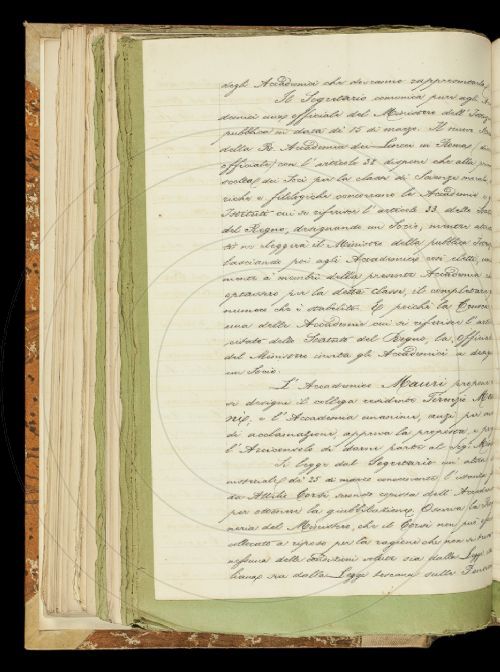 degli Accademici che desiderano rappresentarla,
Il Segretario comunica pure agli
demici una officiale del Ministero dell'
pubblica in data de' 15 di marzo. Il nuovo
della R. Accademia dei Lincei in Roma,
officiale) con l'articolo 32 dispone che alla
scelta dei Soci per la classe di Scienze morali
riche e filologiche concorrano le Accademie e
Istituti cui si riferisce l'articolo 33 dello
del Regno, designando un Socio, mentre
ti ne leggerà il Ministro della pubblica
lasciando poi agli Accademici così eletti,
mente a' membri della presente Accademia
optassero per la detta classe, il completare
numero che è stabilito. E poiché la Crusca
una delle Accademie cui si riferisce l'
citato dello Statuto del Regno, la
del Ministro invita gli Accademici a
un Socio.
L'Accademico Mauri propone
si designi il collega residente Terenzio
e l'Accademia unanime, anzi per
di acclamazione, approva la proposta, e
l'Arciconsolo di darne parte al
Si legge dal Segretario un' altra
de' 25 di marzo concernente l'
da Attilio Corsi secondo copista dell'
per ottenere la giubbilazione. Osserva la
neria del Ministero, che il Corsi non può
collocato a riposo per la ragione che non si
nessuna delle condizioni volute sia dalla Legge
sia dalla Legge toscana sulle